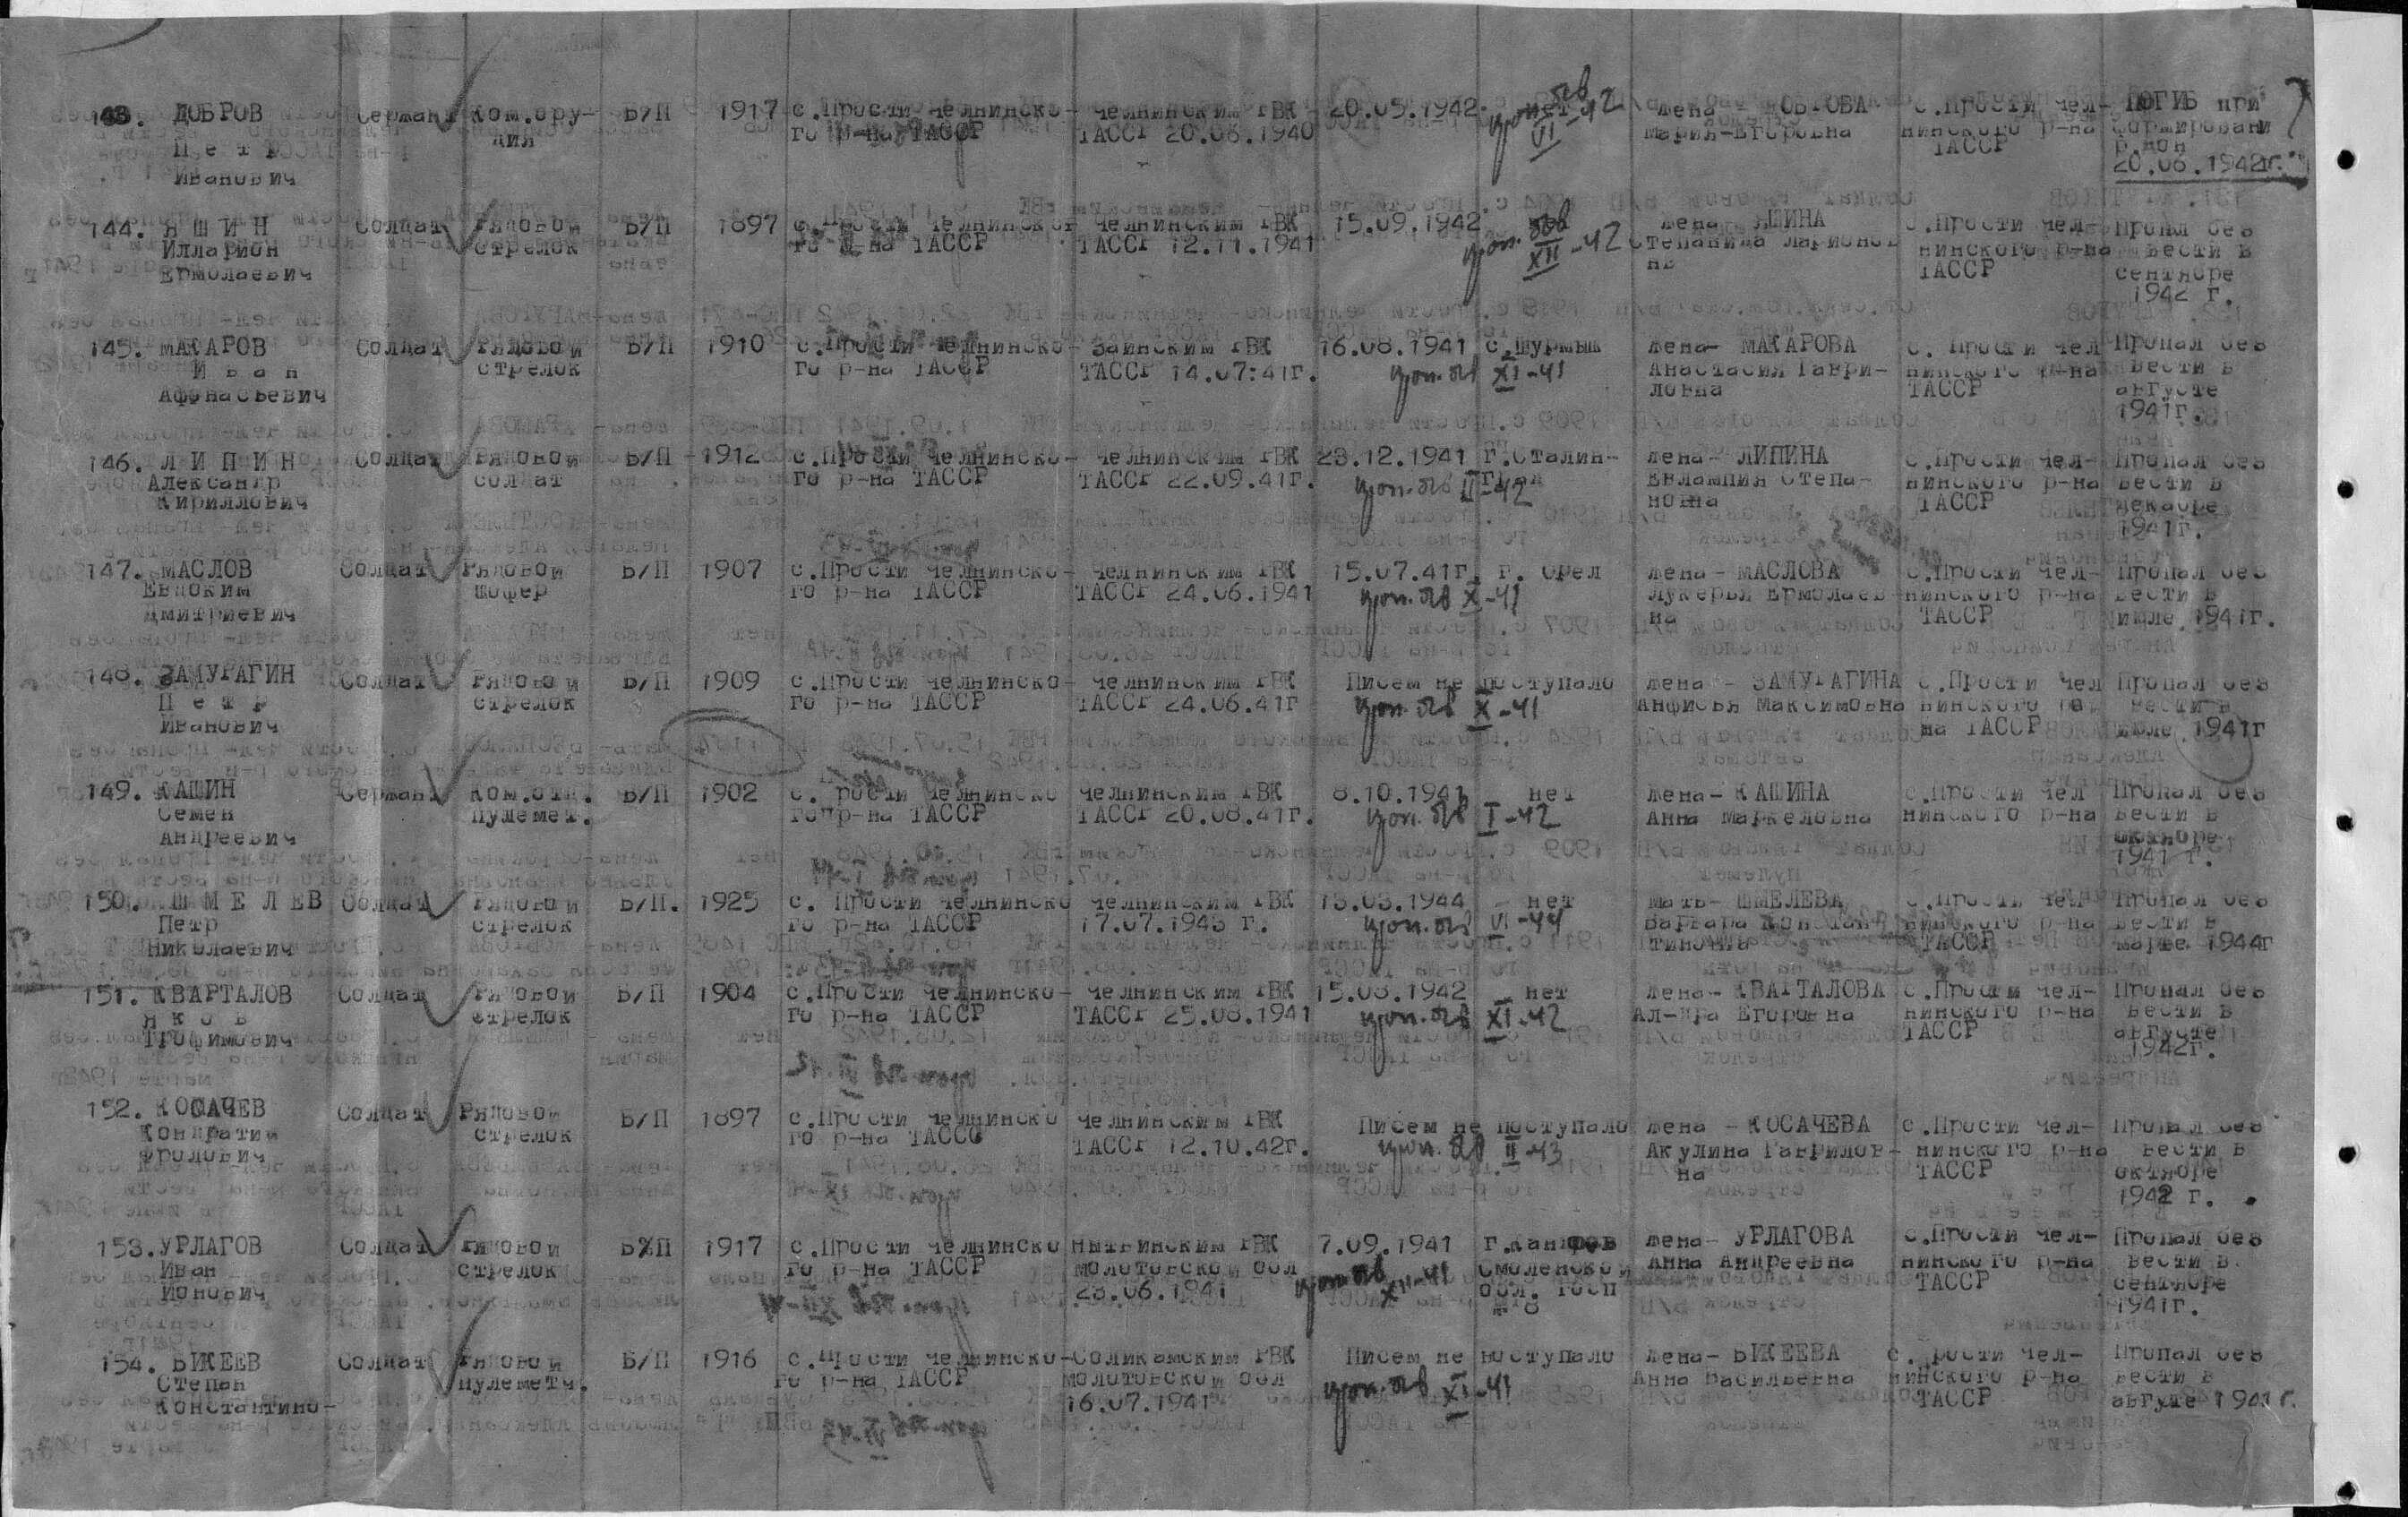 143. ДОБРОВ Сержант Ком.ору- Б/П 1917 с.Прости Челнинско- Челнинским РВК 20.05.1942. нет жена с.Прости Чел- ПОГИБ при
Петр дия го р-на ТАССР ТАССР 20.06.1940 проп. б/в VI-42 Мария-Егоровна нинского р-на
Иванович ТАССР р.Дон
20.06.1942г.
144. ЯШИН Солдат Рядовой Б/П 1897 с.Прости Челнинско- Челнинским РВК 15.09.1942 жена ЯШИНА с.Прости Чел- Пропал без
Илларион стрелок го р-на ТАССР ТАССР 12.11.1941 проп. б/в XII-42 Степанида Ларионов нинского р-на вести в
Ермолаевич на ТАССР сентябре
1942 г.
145. МАКАРОВ Солдат Рядовой Б/П 1910 с.Прости Челнинско- Заинским РВК 16.08.1941 с.Шурмыш жена- МАКАРОВА с. Прости Чел Пропал без
Иван стрелок го р-на ТАССР ТАССР 14.07:41г. проп. б/в XI-41 Анастасия Гаври- нинского р-на вести в
Афонасьевич ловна ТАССР августе
1941г.
146. ЛИПИН Солдат Рядовой Б/П 1912 с.Прости Челнинско- Челнинским РВК 23.12.1941 г.Сталин- жена- ЛИПИНА с.Прости Чел- Пропал без
Александр солдат го р-на ТАССР ТАССР 22.09.41г. проп. б/в II-42 Евлампия Степа- нинского р-на вести в
Кириллович новна ТАССР декабре
1941г.
147. МАСЛОВ Солдат Рядовой Б/П 1907 с.Прости Челнинско- Челнинским РВК 15.07.41г. г. Орел жена - МАСЛОВА с.Прости Чел- Пропал без
Евдоким шофер го р-на ТАССР ТАССР 24.06.1941 проп. б/в X-41 Лукерья Ермолаев- нинского р-на вести в
Дмитриевич на ТАССР июле 1941г.
148. ЗАМУРАГИН Солдат Рядовой Б/П 1909 с.Прости Челнинско- Челнинским РВК Писем не поступало жена - ЗАМУРАГИНА с.Прости Чел Пропал без
Петр стрелок го р-на ТАССР ТАССР 24.06.41г проп. б/в X-41 Анфисья Максимовна нинского ра вести в
Иванович на ТАССР июле 1941г
149. КАШИН Сержант Ком.отд. Б/П 1902 с. Прости Челнинско Челнинским РВК 8.10.1941 нет жена- КАШИНА с.Прости Чел Пропал без
Семен пулемет. го р-на ТАССР ТАССР 20.08.41г. проп. б/в I-42 Анна Маркеловна нинского р-на вести в
Андреевич октябре
1941 г.
150. ШМЕЛЕВ Солдат Рядовой Б/П. 1925 с. Прости Челнинско Челнинским РВК 13.03.1944 нет мать- ШМЕЛЕВА с.Прости Чел- Пропал без
Петр стрелок го р-на ТАССР 17.07.1943 г. проп. б/в VI-44 Варвара Констан- нинского р-на вести в
Николаевич тиновна ТАССР марте 1944г
151. КВАРТАЛОВ Солдат Рядовой Б/П 1904 с.Прости Челнинско- Челнинским РВК 15.08.1942 нет жена- КВАРТАЛОВА с.Прости Чел- Пропал без
Яков стрелок го р-на ТАССР ТАССР 25.08.1941 проп. б/в XI-42 Ал-дра Егоровна нинского р-на вести в
Трофимович ТАССР августе
1942г.
152. КОСАЧЕВ Солдат Рядовой Б/П 1897 с.Прости Челнинско Челнинским РВК Писем не поступало жена - КОСАЧЕВА с.Прости Чел- Пропал без
Кондратий стрелок го р-на ТАССС ТАССР 12.10.42г. проп. б/в II-43 Акулина Гаврилов- нинского р-на вести в
Фролович на ТАССР октябре
1942 г.
153. УРЛАГОВ Солдат Рядовой Б%П 1917 с.Прости Челнинско Нытвинским РВК 7.09.1941 жена- УРЛАГОВА с.Прости Чел- Пропал без
Иван стрелок го р-на ТАССР Молотовской обл проп. б/в XII-41 Смоленской Анна Андреевна нинского р-на вести в
Ионович 23.06.1941 обл. Госп ТАССР сентябре
1941г.
154. БИЖЕЕВ Солдат Рядовой Б/П 1916 с.Прости Челнинско- Соликамским РВК Писем не поступало жена- БИЖЕЕВА с.Прости Чел- Пропал без
Степан пулеметч. го р-на ТАССР Молотовской обл проп. б/в XI-41 Анна Васильевна нинского р-на вести в
Константино- 16.07.1941 ТАССР августе 1941г.